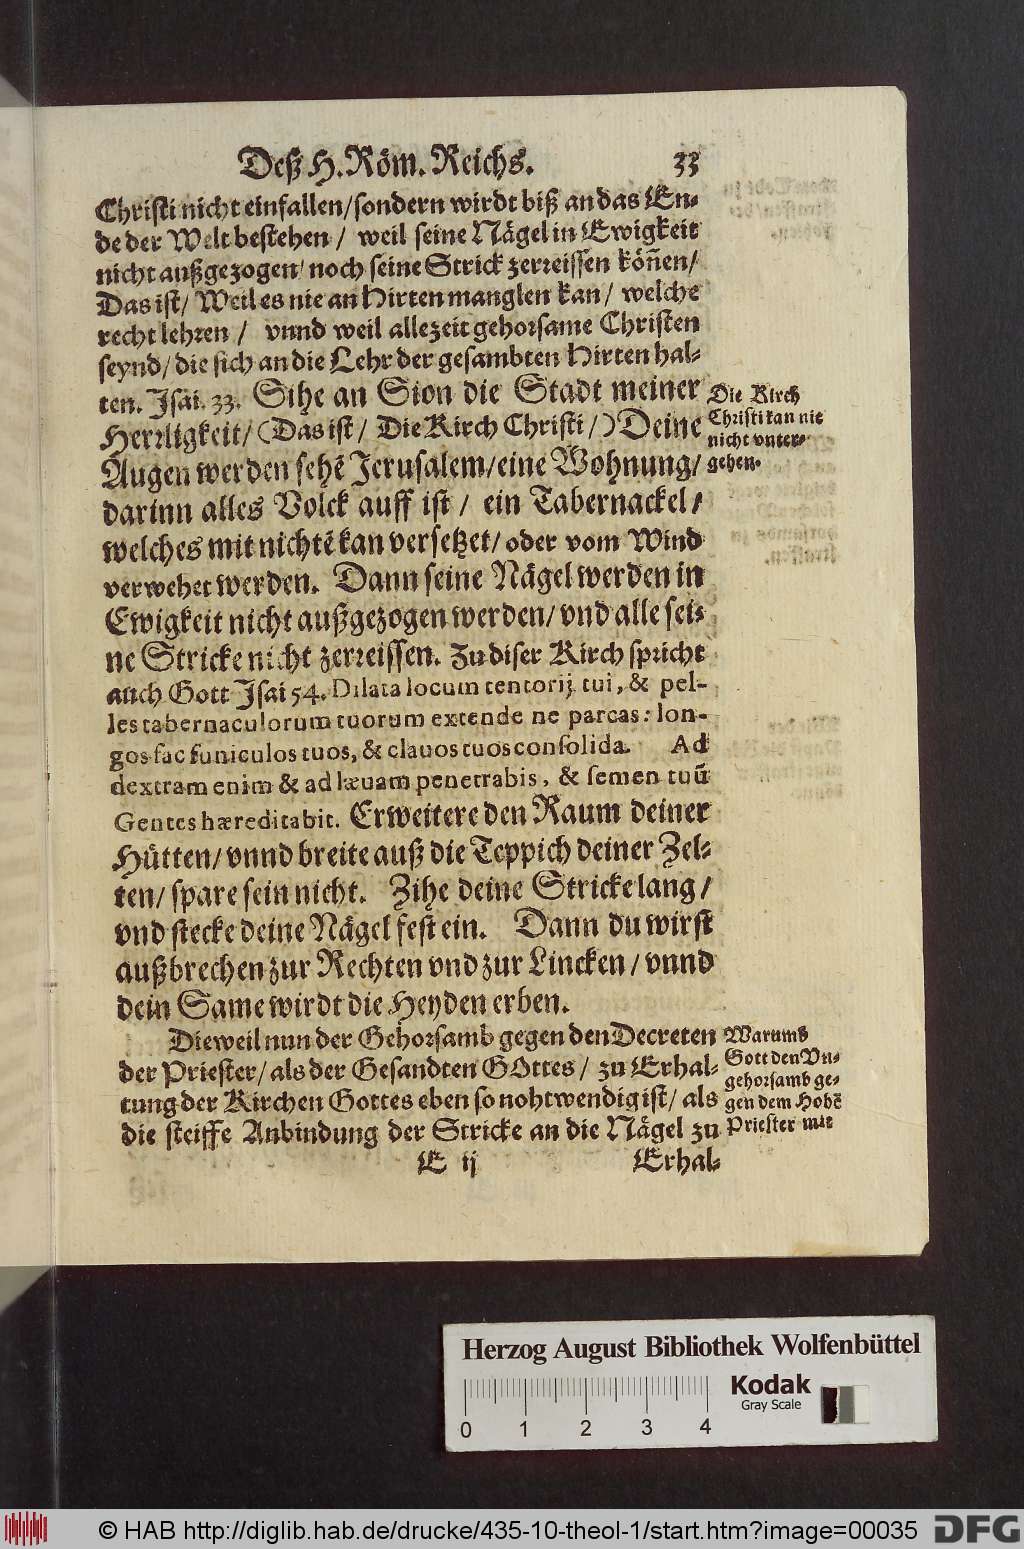 Deß H. Röm. Reichs. 33
Christi nicht einfallen/ sondern wirdt biß an das En-
de der Welt bestehen/ weil seine Nägel in Ewigkeit
nicht außgezogen/ noch seine Strick zerreissen köñen/
Das ist/ Weil es nie an Hirten manglen kan/ welche
recht lehren/ vnnd weil allezeit gehorsame Christen
seynd/ die sich an die Lehr der gesambten Hirten hal-
ten. Isai. 33. Sihe an Sion die Stadt meiner
Herrligkeit/ (Das ist/ Die Kirch Christi/) Deine
Augen werden sehē Jerusalem/ eine Wohnung/
darinn alles Volck auff ist/ ein Tabernackel/
welches mit nichtē kan versetzet/ oder vom Wind
verwehet werden. Dann seine Nägel werden in
Ewigkeit nicht außgezogen werden/ vnd alle sei-
ne Stricke nicht zerreissen. Zu diser Kirch spricht
auch Gott Isai 54. Dilata locum tentorij tui, & pel-
les tabernaculorum tuorum extende ne parcas: lon-
gos fac funiculos tuos, & clauos tuos consolida. Ad
dextram enim & ad lævam penetrabis, & semen tuū
Gentes hæreditabit. Erweitere den Raum deiner
Hütten/ vnnd breite auß die Teppich deiner Zel-
ten/ spare sein nicht. Zihe deine Stricke lang/
vnd stecke deine Nägel fest ein. Dann du wirst
außbrechen zur Rechten vnd zur Lincken/ vnnd
dein Same wirdt die Heyden erben.
Dieweil nun der Gehorsamb gegen den Decreten
der Priester/ als der Gesandten GOttes/ zu Erhal-
tung der Kirchen Gottes eben so nohtwendig ist/ als
die steiffe Anbindung der Stricke an die Nägel zu
E ij Erhal-
Die Kirch
Christi kan nie
nicht vnter-
gehen.
Warumb
Gott den Vn-
gehorsamb ge-
gen dem Hohē
Priester mit
Herzog August Bibliothek Wolfenbüttel
Kodak
Gray Scale
0 1 2 3 4
© HAB http://diglib.hab.de/drucke/435-10-theol-1/start.htm?image=00035
DFG